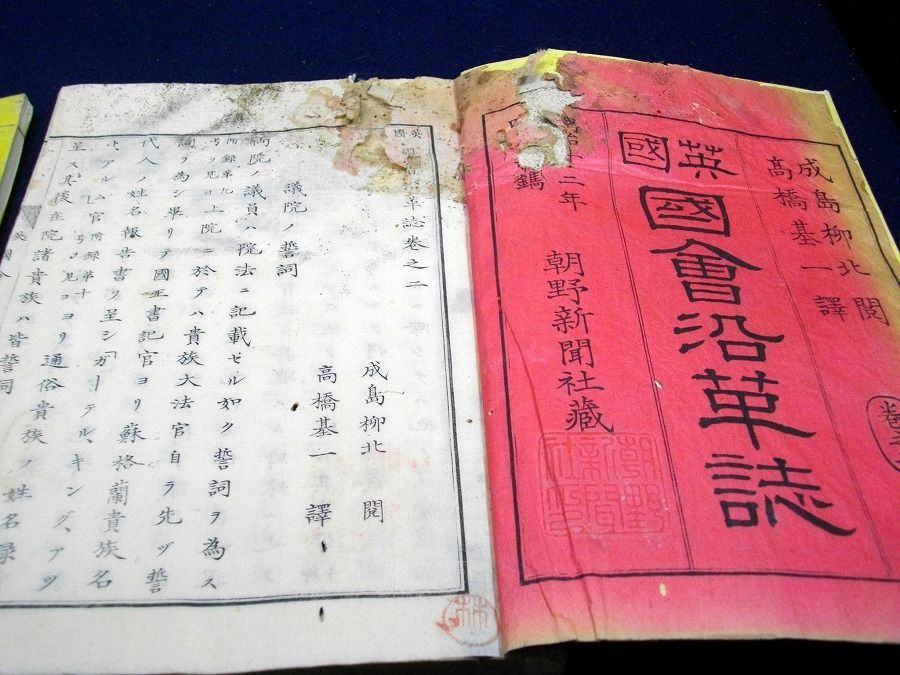 成島柳北 閲
高橋基一 譯
英國
國會沿革誌
二年 朝野新聞社藏
英國 革誌卷之二
成島柳北 閲
高橋基一 譯
議院ノ誓詞
両院ノ議員ハ院法ニ記載セル如ク誓詞ヲ為ス
附録第九号ヲ見ヨ上院ニ於テハ貴族大法官自ラ先ヅ誓
詞ヲ為シ畢リテ國王書記官ヨリ蘇格蘭貴族名
代人ノ姓名報告書ヲ呈シ「ガーテル、キング、アツ
ト、アルム」官附録第十号ヲ見ヨヨリ通俗貴族ノ姓名録
呈ス其後在院諸貴族ハ皆誓詞
英國